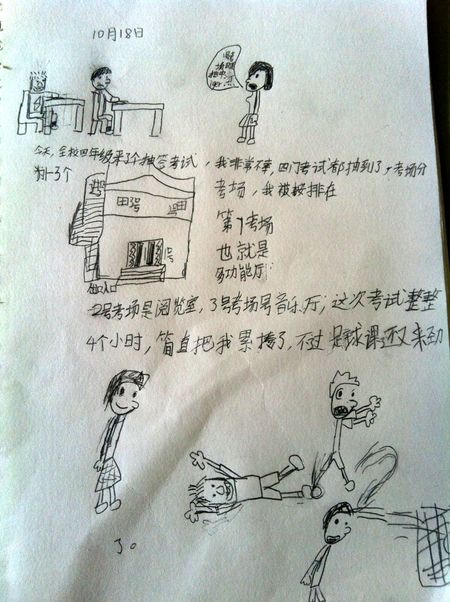 10月18日
今天,全校四年级来了个抽签考试,我非常不幸,四门考试都抽到了,考场分
为1-3个
考场,我被排在
第1考场
也就是
多功能厅
出入口
2号考场是阅览室,3号考场是音乐厅,这次考试整整
4个小时,简直把我累垮了,不过足球课还又来劲
了。